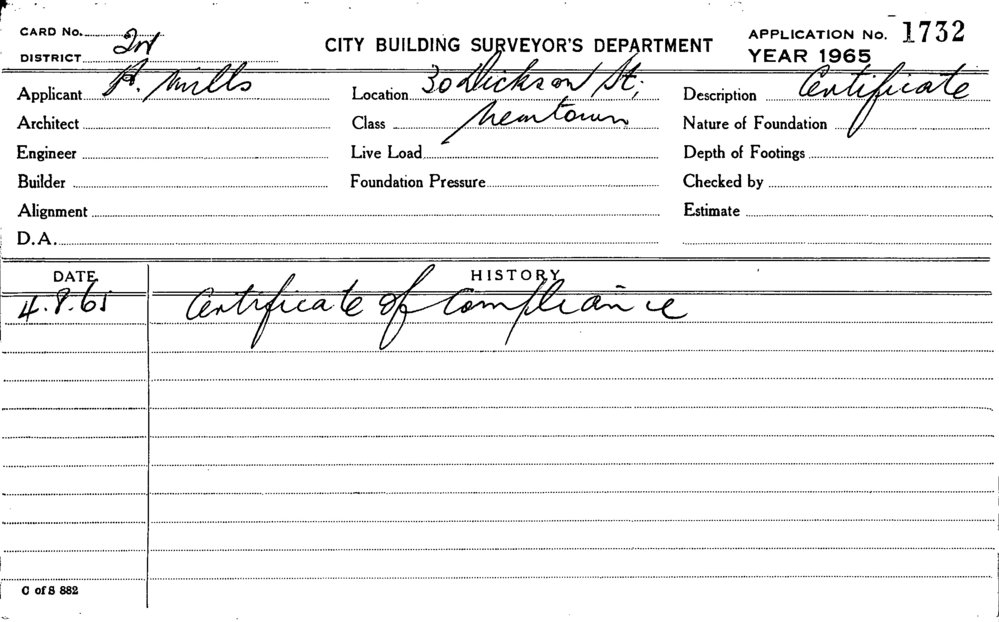 CARD No.
DISTRICT 2nd
CITY BUILDING SURVEYOR'S DEPARTMENT
APPLICATION No. 1732
YEAR 1965
Applicant Mills
Location 30 Dickson St;
Description Certificate
Architect
Class Newtown
Nature of Foundation
Engineer
Live Load
Depth of Footings
Builder
Foundation Pressure
Checked by
Alignment
Estimate
D.A.
DATE HISTORY
4.8.65 Certificate of Compliance
C of S 882